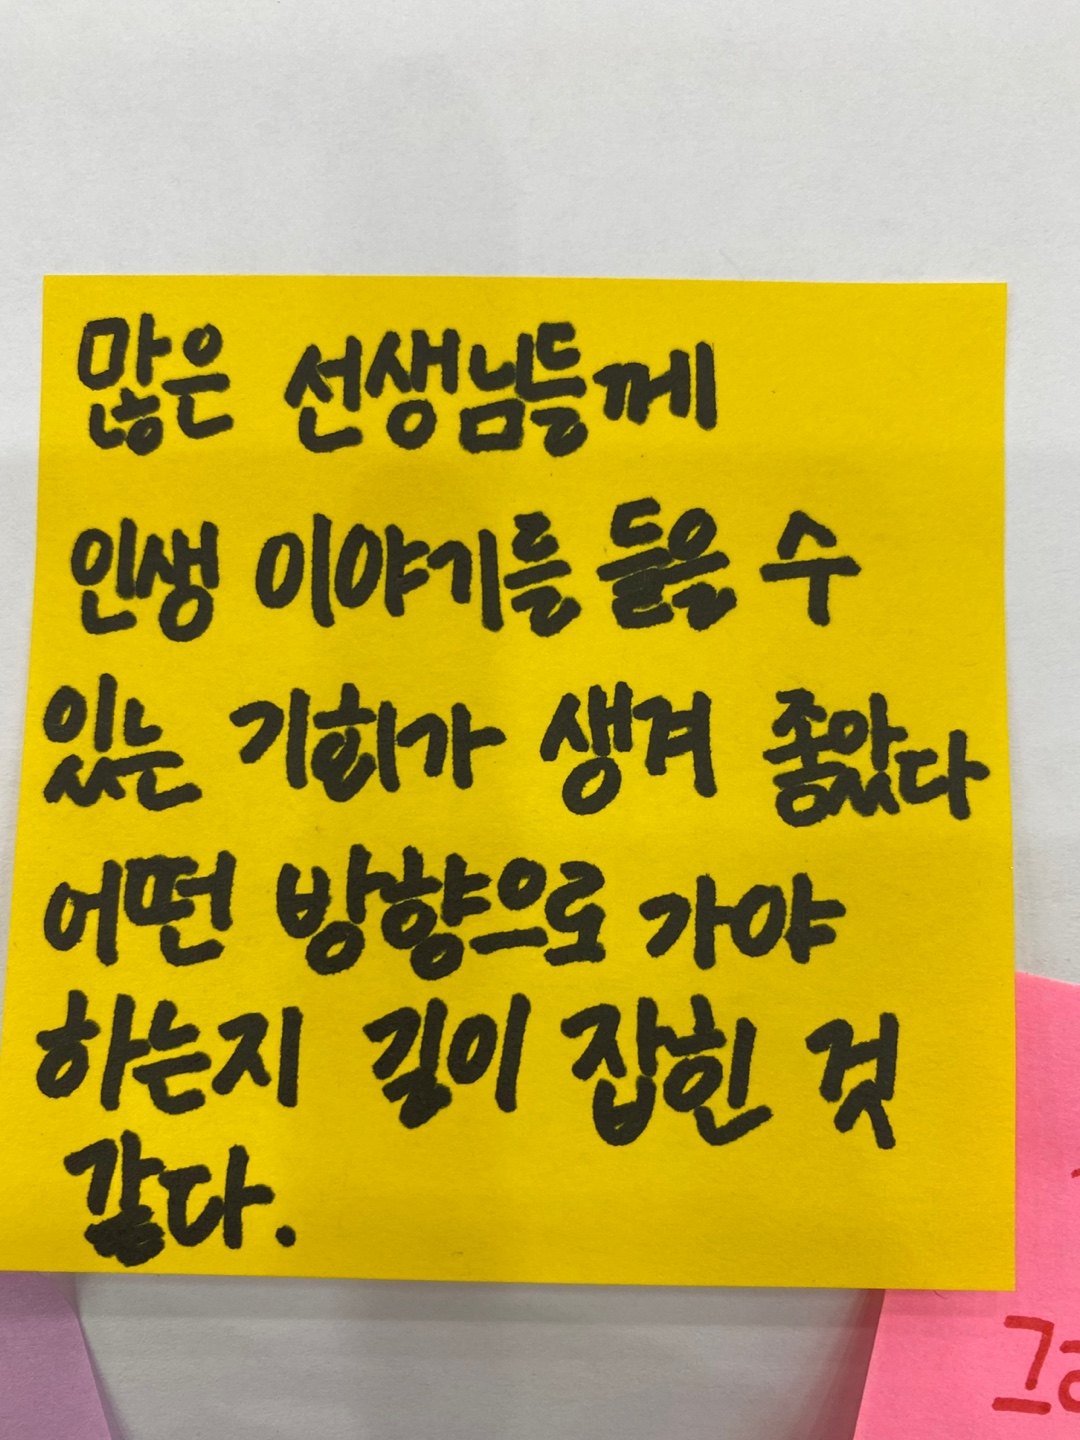 많은 선생님들께
인생 이야기를 들을 수
있는 기회가 생겨 좋았다
어떤 방향으로 가야
하는지 길이 잡힌 것
같다.